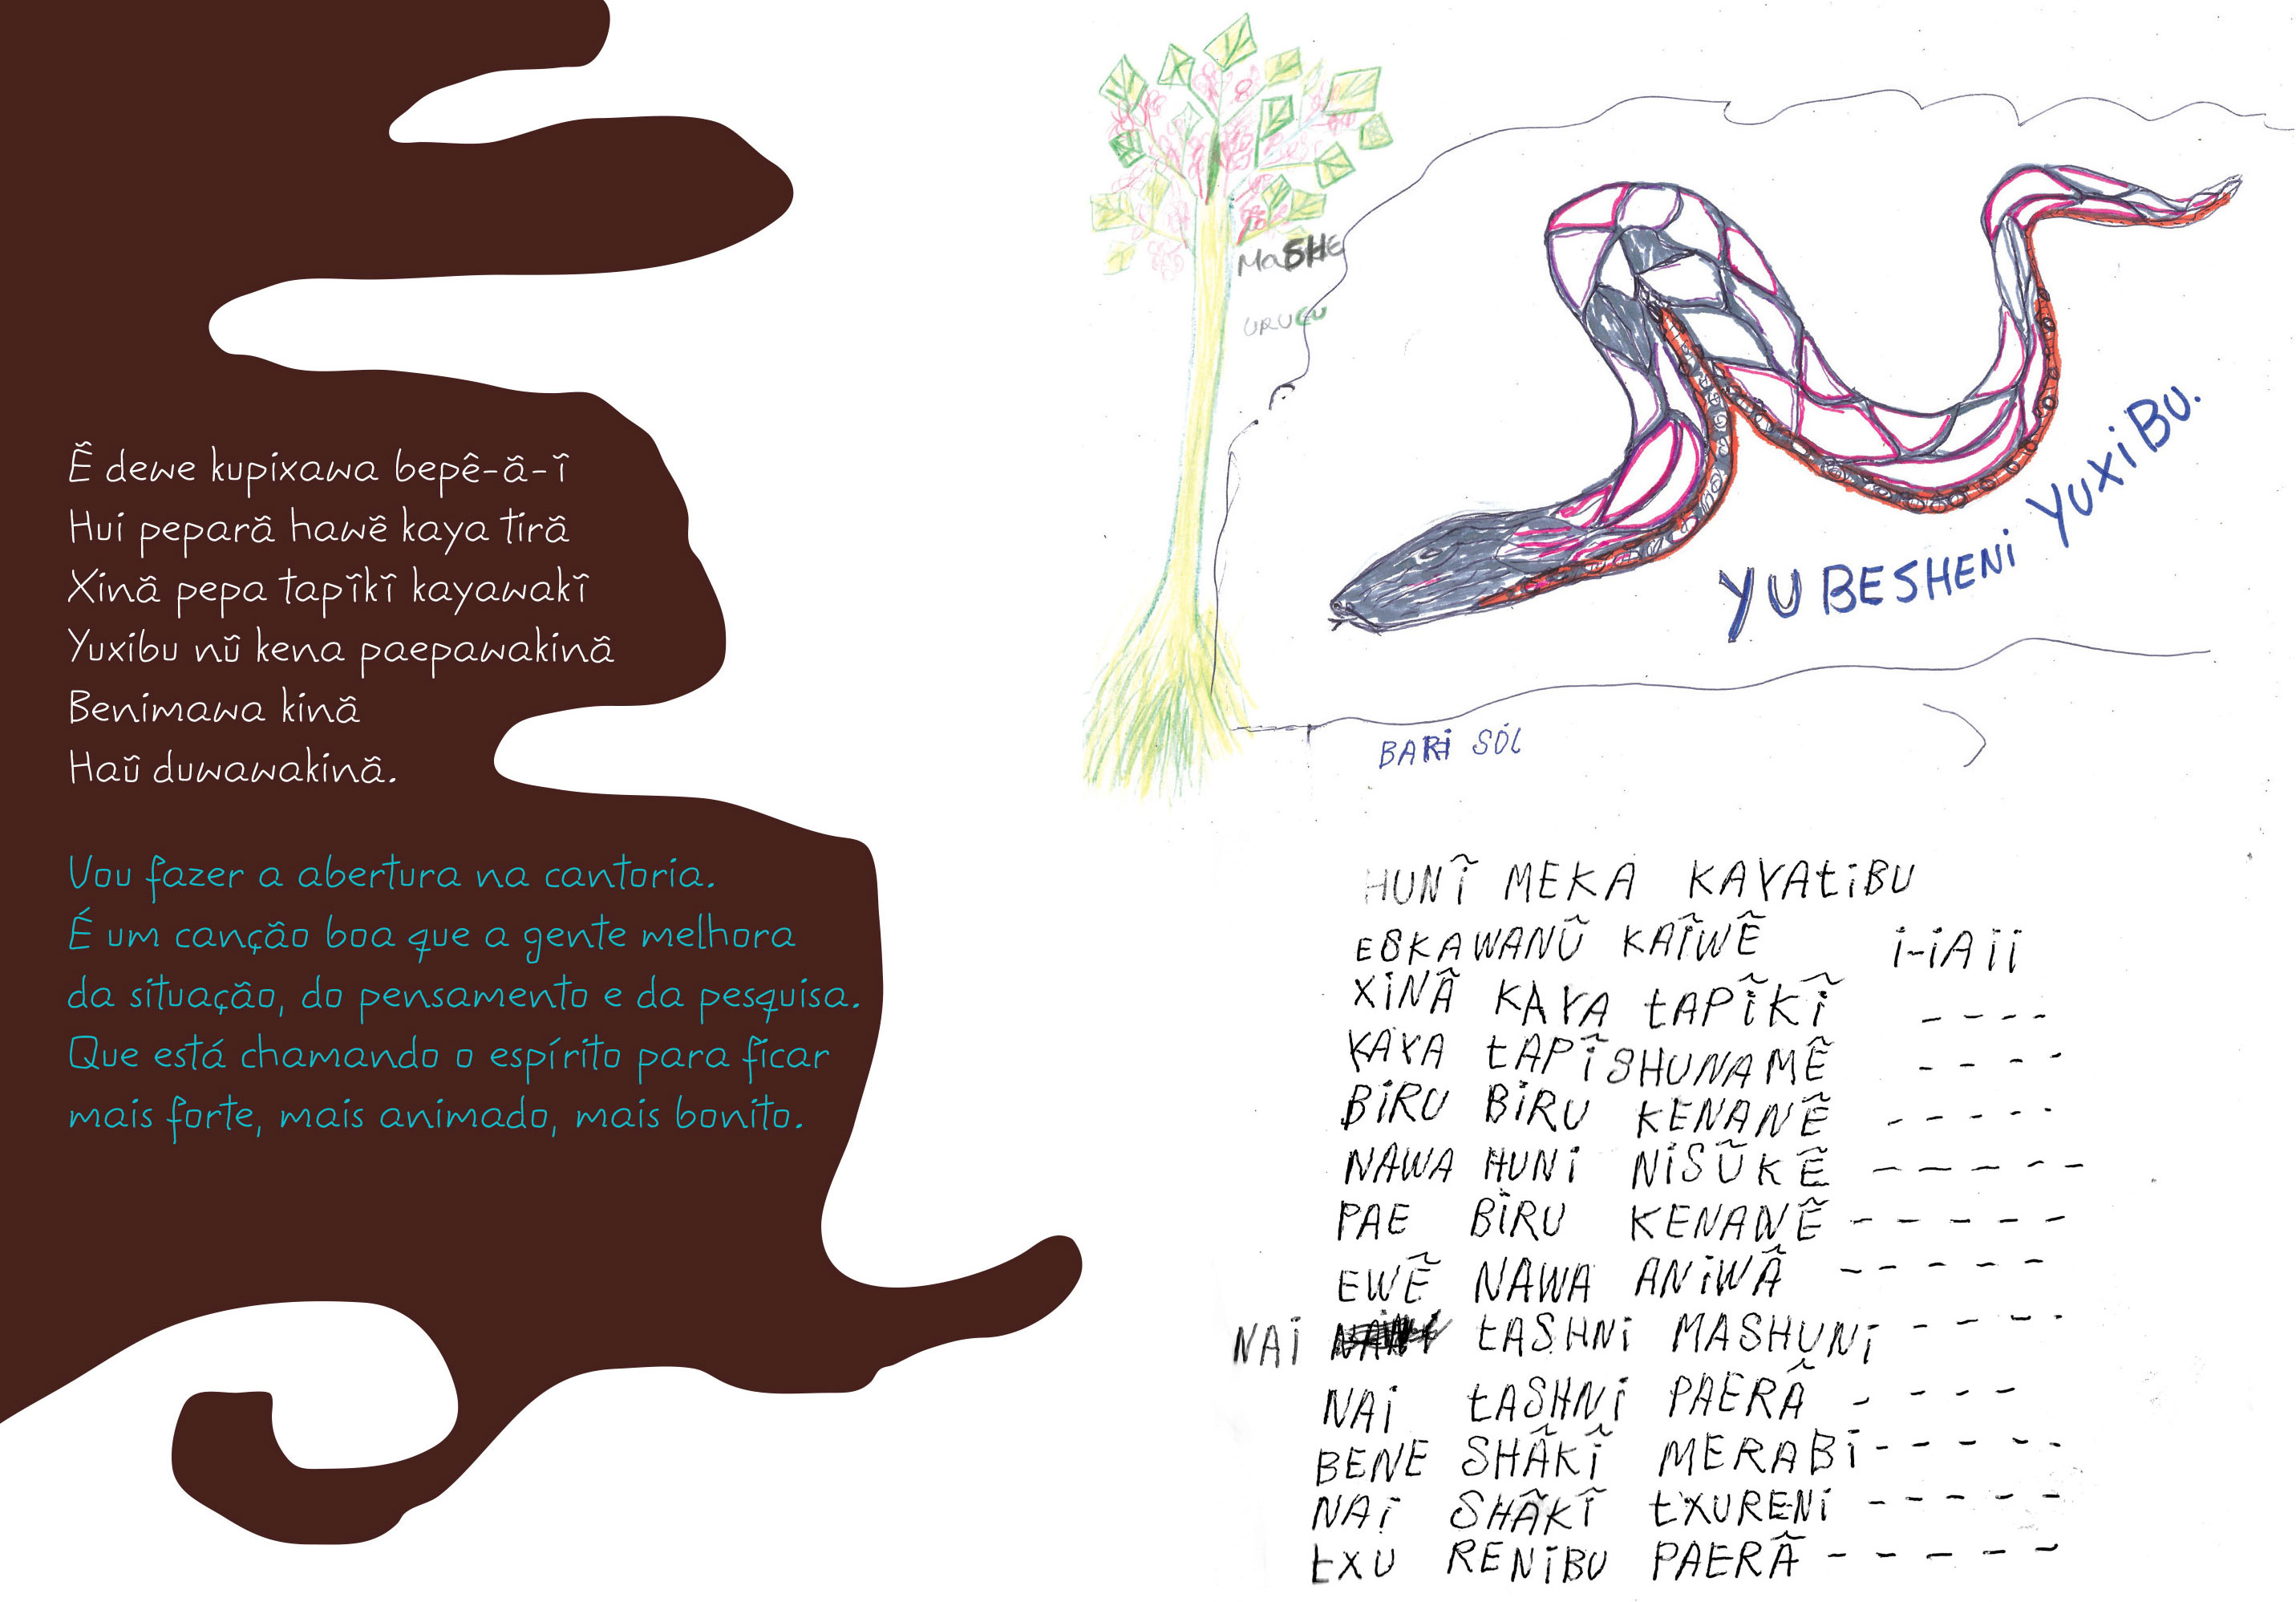 Ẽ dewe kupixawa bepê-ã-ĩ
Hui peparã hawẽ kaya tirã
Xinã pepa tapĩkĩ kayawakĩ
Yuxibu nũ kena paepawakinã
Benimawa kinã
Haũ duwawakinã.
Vou fazer a abertura na cantoria.
É um canção boa que a gente melhora
da situação, do pensamento e da pesquisa.
Que está chamando o espírito para ficar
mais forte, mais animado, mais bonito.
MaSHE
URUCU
YUBESHENi YUXiBU.
BARi SÓL
HUNĨ MEKA KAYAtiBU
ESKAWANŨ KAĨWẼ i-iAii
XiNÃ KAYA tAPĨKĨ ----
KAYA tAPĨSHUNAMẼ ----
BiRU BiRU KENANẼ -----
NAWA HUNi NiSŨKẼ -----
PAE BiRU KENANẼ -----
EWẼ NAWA ANiWÃ -----
NAi tASHNi MASHUNi ----
NAi tASHNi PAERÃ ----
BENE SHÃKĨ MERABi -----
NAi SHÃKĨ tXURENi -----
tXU RENiBU PAERÃ -----